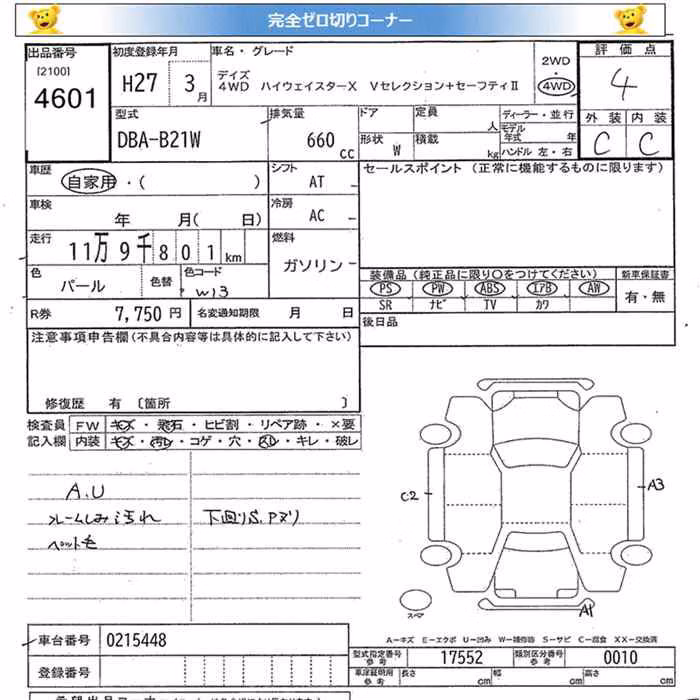 完全ゼロ切りコーナー
出品番号 初度登録年月 車名・グレード 2WD 評価点
[2100] デイズ
4601 H27 3月 4WD ハイウェイスターX Vセレクション+セーフティⅡ 4WD 4
型式 排気量 ドア 定員 人 ディーラー・並行 外装 内装
モデル年式 年
DBA-B21W 660 cc 形状 W 積載 kg ハンドル 左・右 C C
車歴 自家用・( ) シフト AT セールスポイント (正常に機能するものに限ります)
車検 年 月( 日) 冷房 AC
走行 11万9千801km 燃料 ガソリン
色 パール 色替 色コード W13
装備品 (純正品に限り○をつけてください) 新車保証書
PS PW ABS エアB AW 有・無
SR ナビ TV カワ
R券 7,750円 名変通知期限 月 日 後日品
注意事項申告欄(不具合内容等は具体的に記入して下さい)
修復歴 有 〔箇所 〕
検査員 FW キズ・飛石・ヒビ割・リペア跡・×要
記入欄 内装 キズ・汚レ・コゲ・穴・スレ・キレ・破レ
A.U
フレームしみ汚れ 下回りS.Pヌリ
ペット毛
C2 A3
スペア A1
A-キズ E-エクボ U-凹み W-補修跡 S-サビ C-腐食 XX-交換済
車台番号 0215448 型式指定番号 参考 17552 類別区分番号 参考 0010
登録番号 車庫証明用 参考 長さ cm 幅 cm 高さ cm